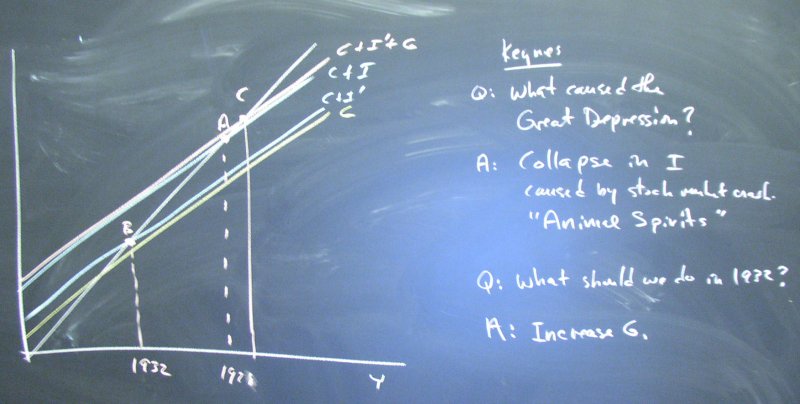 C+I'+G
C+I
C+I'
G
C
A
B
1932
Y
Keynes
Q: What caused the
Great Depression?
A: Collapse in I
caused by stock market crash.
"Animal Spirits"
Q: What should we do in 1932?
A: Increase G.